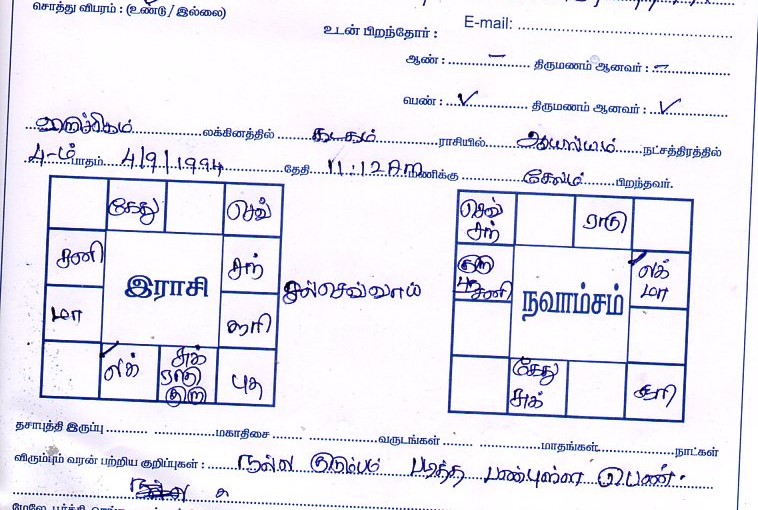 சொத்து விபரம் : (உண்டு / இல்லை)
உடன் பிறந்தோர் : E-mail:
ஆண் : – திருமணம் ஆனவர் : –
பெண் : ✓ திருமணம் ஆனவர் : ✓
லக்கினத்தில் கடகம் ராசியில் ஆயில்யம் நட்சத்திரத்தில்
4-ம் பாதம் 4/9/1994 தேதி 11:12 AM மணிக்கு சேலம் பிறந்தவர்.
கேது செவ்
சனி சந்
இராசி
மா சூரி
லக் சுக் ராகு குரு புத
சுத்செவ்வாய்
செவ் சந் ராகு
குரு புத சனி லக் மா
நவாம்சம்
கேது சுக் சூரி
தசாபுத்தி இருப்பு மகாதிசை வருடங்கள் மாதங்கள் நாட்கள்
விரும்பும் வரன் பற்றிய குறிப்புகள் : நல்ல குடும்பம் படித்த பண்புள்ள பெண்.